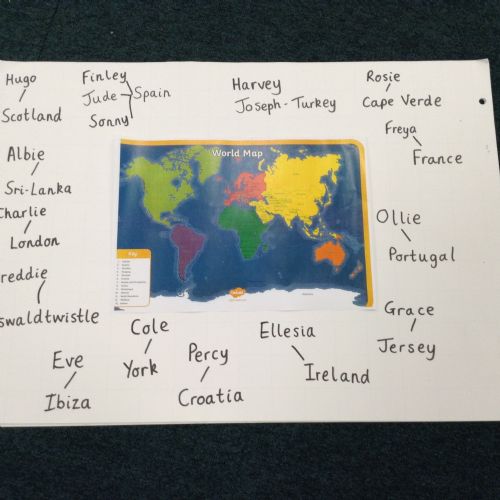 Hugo
Scotland
Finley
Jude
Sonny
Spain
Harvey
Joseph - Turkey
Rosie
Cape Verde
Freya
France
Albie
Sri-Lanka
Charlie
London
reddie
swaldtwistle
World Map
Key
Ollie
Portugal
Grace
Jersey
Cole
York
Ellesia
Ireland
Eve
Ibiza
Percy
Croatia